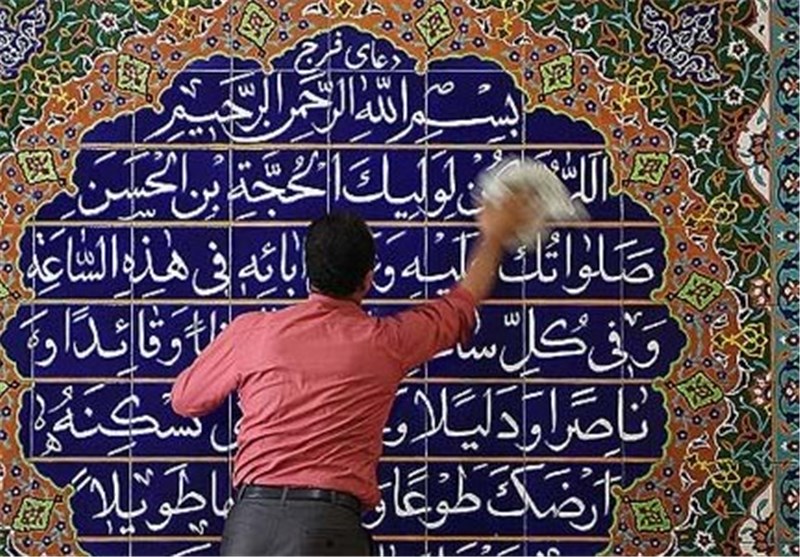 دعای فرج
بِسْمِ اللهِ الرَّحْمنِ الرَّحيمِ
لِوَلِيِّكَ الْحُجَّةِ بْنِ الْحَسَنِ
صَلَواتُكَ فی هذِهِ السّاعَةِ
وَفی كُلِّ وَقائِدًا وَ
ناصِرًا وَدَليلًا تُسْكِنَهُ
اَرْضَكَ طَوْعًا طَويلًا